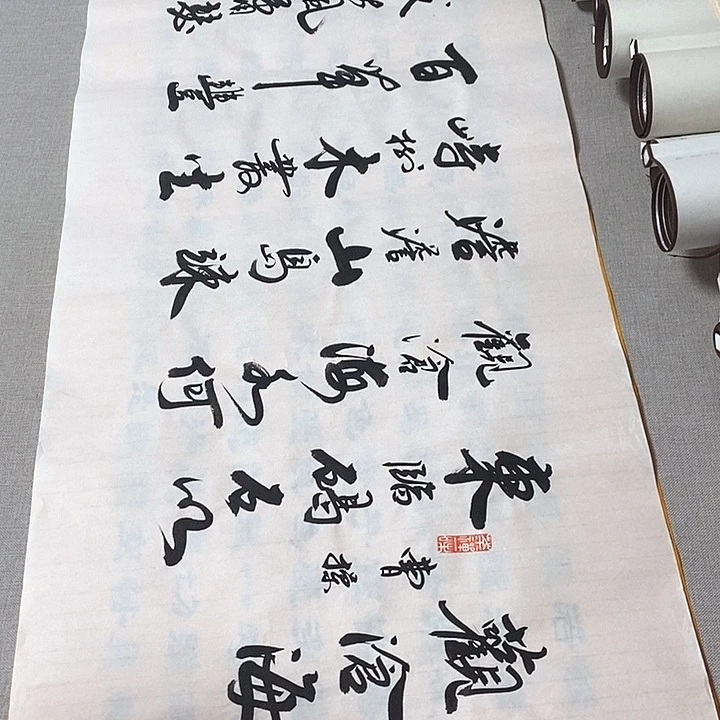 觀滄海
曹操
東臨碣石以
觀滄海水何
澹澹山島竦
峙樹木叢生
百草豐
風蕭瑟